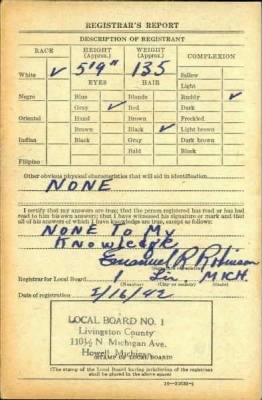 REGISTRAR'S REPORT
DESCRIPTION OF REGISTRANT
RACE HEIGHT (Approx.) WEIGHT (Approx.) COMPLEXION
White ✓ 5'9" 135 Sallow
EYES HAIR Light
Negro Blue Blonde Ruddy ✓
Gray ✓ Red Dark
Oriental Hazel Brown Freckled
Brown Black ✓ Light brown
Indian Black Gray Dark brown
Bald Black
Filipino
Other obvious physical characteristics that will aid in identification
NONE
I certify that my answers are true; that the person registered has read or has had
read to him his own answers; that I have witnessed his signature or mark and that
all of his answers of which I have knowledge are true, except as follows:
NONE To My
Knowledge
Emanuel R
Registrar for Local Board 1 Liv. MICH.
(Number) (City or county) (State)
Date of registration 2/16/42
LOCAL BOARD NO. 1
Livingston County
110½ N. Michigan Ave.
Howell, Michigan
(STAMP OF LOCAL BOARD)
(The stamp of the Local Board having jurisdiction of the registrant
shall be placed in the above space)